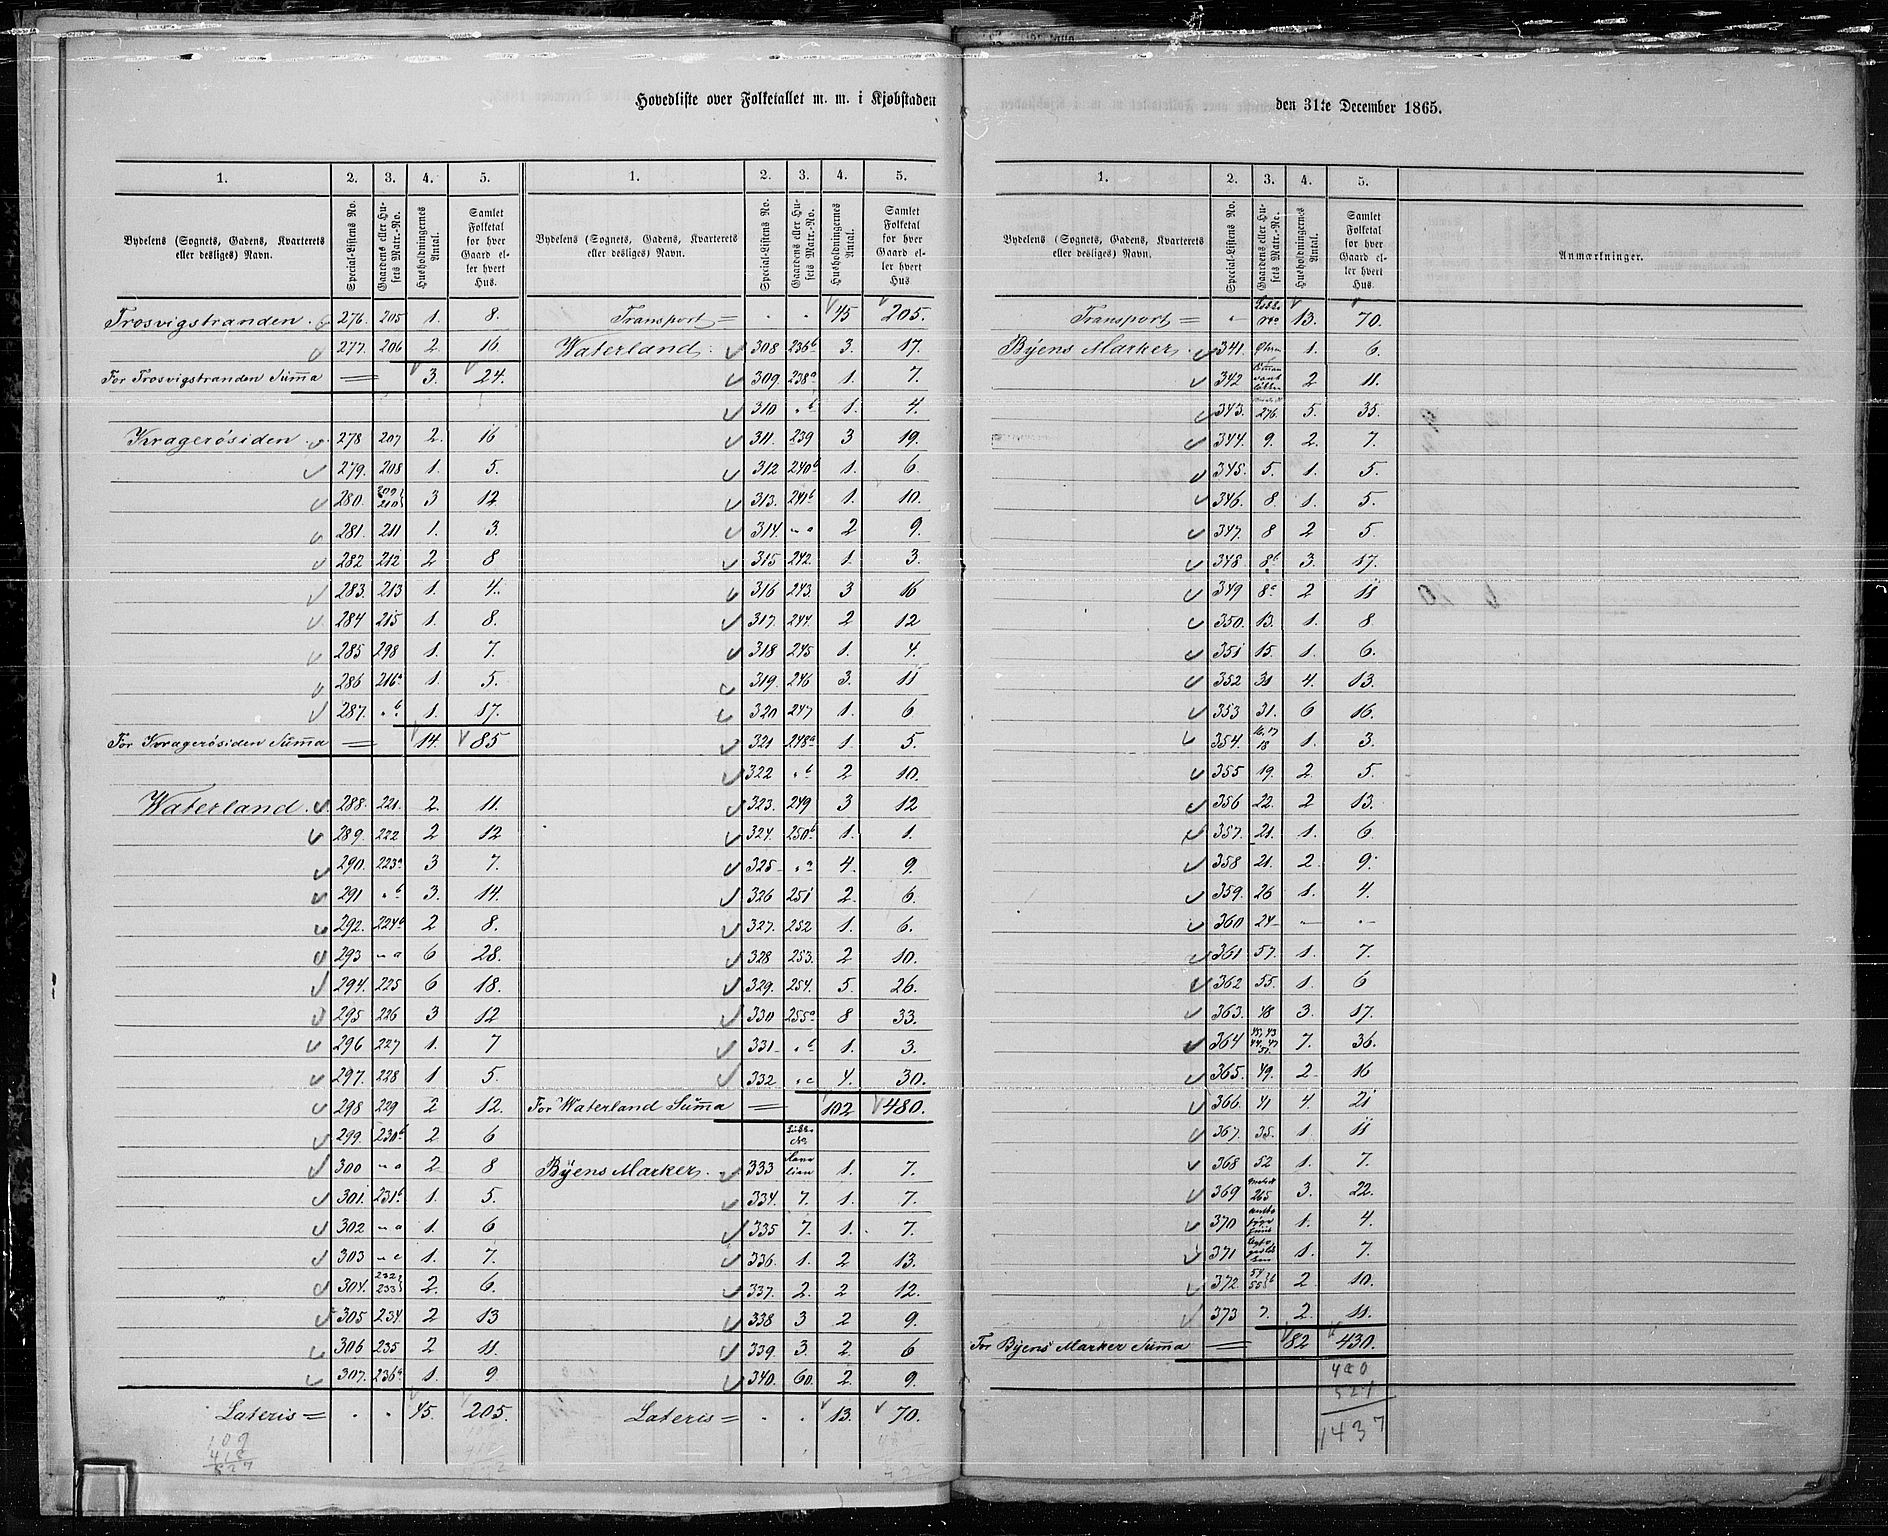 Hovedliste over Folketallet m. m. i Kjøbstaden
den 31te December 1865.
1. 2. 3. 4. 5.
Bydelens (Sognets, Gadens, Kvarterets eller desliges) Navn. Special-Listens No. Gaardens eller Husets Matr.-No. Husholdningernes Antal. Samlet Folketal for hver Gaard eller hvert Hus.
Trosvigstranden. 276. 205 1. 8.
277. 206 2. 16.
For Trosvigstranden Summa = 3. 24.
Kragerøsiden. 278 207 2. 16
279. 208 1. 5.
280. 209 210 } 3 12
281. 211 1. 3.
282 212 2 8
283. 213 1. 4.
284 215 1. 8.
285 298 1. 7.
286 216a 1. 5.
287. " b 1. 17.
For Kragerøsiden Summa = 14. 85
Waterland. 288. 221. 2. 11.
289. 222 2 12
290. 223a 3 7.
291 " b 3. 14.
292. 224b 2 8.
293 " a 6 28.
294. 225 6 18.
295 226 3 12
296 227 1. 7
297. 228 1 5.
298 229 2 12.
299. 230b 2 6
300 " a 2 8
301. 231b 1. 5.
302 " a 1. 6
303 " c 1. 7.
304. 232 233 } 2. 6.
305 234 2 13
306 235 2 11.
307. 236a 1. 9
Lateris = . . 45. 205.
109
418
527
1. 2. 3. 4. 5.
Bydelens (Sognets, Gadens, Kvarterets eller desliges) Navn. Special-Listens No. Gaardens eller Husets Matr.-No. Husholdningernes Antal. Samlet Folketal for hver Gaard eller hvert Hus
Transport = . . 45 205.
Waterland. 308 236b 3. 17.
309. 238a 1. 7.
310 " b 1. 4.
311. 239 3 19.
312 240b 1. 6.
313. 241b 1. 10.
314. " a 2 9.
315 242. 1. 3.
316 243. 3 16
317. 244. 2 12
318 245 1. 4.
319. 246 3. 11
320 247 1. 6
321 248a 1. 5.
322 " b 2 10.
323. 249 3 12
324. 250b 1. 1.
325 " a 4 9.
326 251 2. 6.
327. 252 1. 6.
328 253. 2 10.
329. 254. 5. 26.
330 255a 8 33.
331 " b 1. 3.
332 " c 4. 30.
For Waterland Summa = 102 480.
Byens Marker. 333 1. 7.
334. 7. 1. 7.
335 7. 1. 7.
336. 1. 2 13.
337. 2. 2 12.
338 3 2 9.
339 3. 2. 6
340. 60. 2. 9.
Lateris = . . 13. 70.
1. 2. 3. 4. 5.
Bydelens (Sognets, Gadens, Kvarterets eller desliges) Navn. Special-Listens No. Gaardens eller Husets Matr.-Nr. Husholdningernes Antal. Samlet Folketal for hver Gaard eller hvert Hus. Anmærkninger.
Transport = 13. 70.
Byens Marker. 341. 1. 6.
342 2 11.
343. 276. 5. 35.
344. 9. 2. 7.
345. 5. 1. 5.
346. 8. 1. 5.
347. 8 2 5
348 8b 3. 17.
349 8a 2 11
350. 13. 1. 8
351 15. 1. 6.
352 31 4. 13.
353 31. 6 16.
354. 16. 17 18 1. 3.
355 19. 2 5.
356 22. 2 13.
357. 21. 1. 6
358 21. 2. 9.
359. 26 1. 4.
360 24 — —
361 57. 1. 7.
362 55. 1. 6
363. 48 3. 17.
364 7. 36.
365. 49. 2 16
366. 41 4. 21
367. 35. 1. 11
368 52 1. 7.
369 265 3. 22.
370 1. 4.
371 1. 7.
372. 54 55 } b 2 10.
373 7. 2. 11.
For Byens Marker Summa = 82 430.
480
527
1437